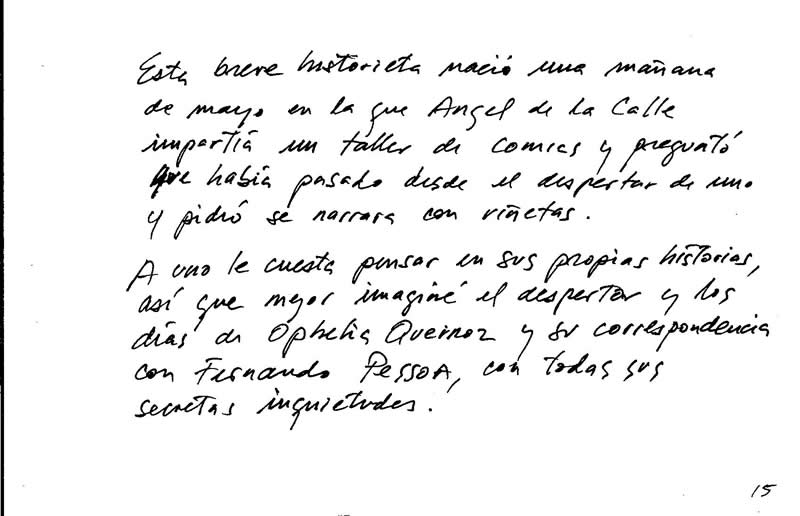 Esta breve historieta nació una mañana
de mayo en la que Angel de la Calle
impartía un taller de comics y preguntó
que había pasado desde el despertar de uno
y pidió se narrara con viñetas.
A uno le cuesta pensar en sus propias historias,
así que mejor imaginé el despertar y los
días de Ophelia Queiroz y su correspondencia
con Fernando Pessoa, con todas sus
secretas inquietudes.
15